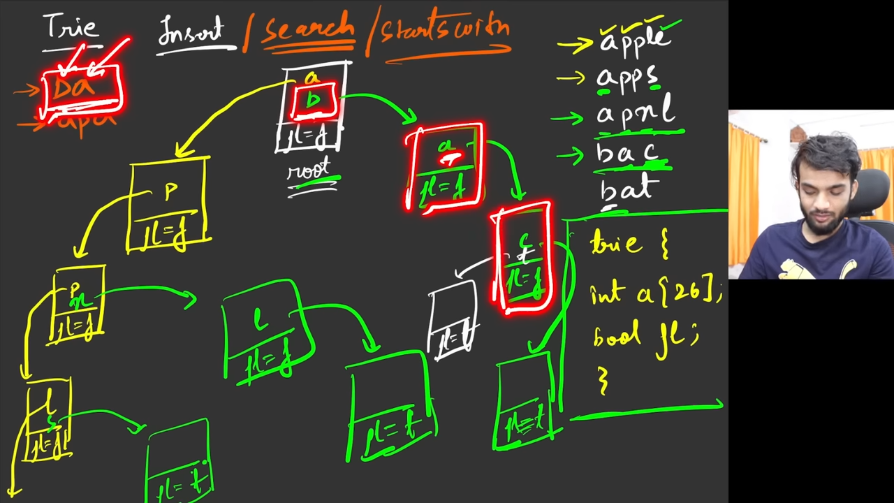 Trie Insert / search / startswith
→ ba
→ apa
→ apple
→ apps
→ apxl
→ bac
bat
a
b
fl=f
root
p
fl=f
a
fl=f
c
t
fl=f
p
x
fl=f
l
fl=f
fl=t
l
s
fl=f
fl=t
fl=t
fl=t
trie {
int a[26];
bool fl;
}